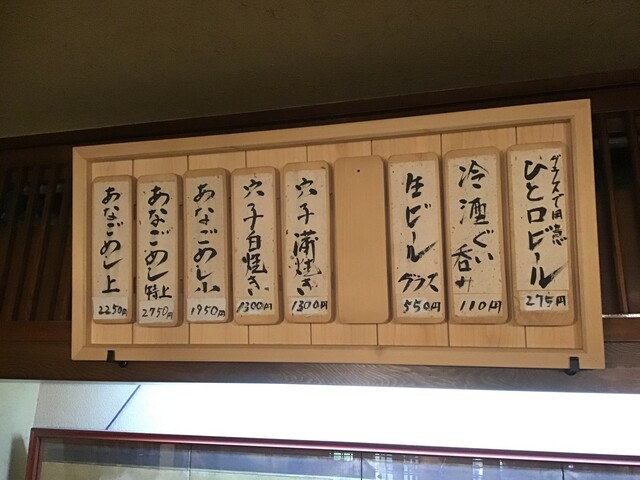 グラスで用意
ひと口ビール
275円
冷酒ぐい呑み
110円
生ビール
グラス
550円
穴子蒲焼き
1300円
穴子白焼き
1300円
あなごめし小
1950円
あなごめし
特上
2750円
あなごめし上
2250円